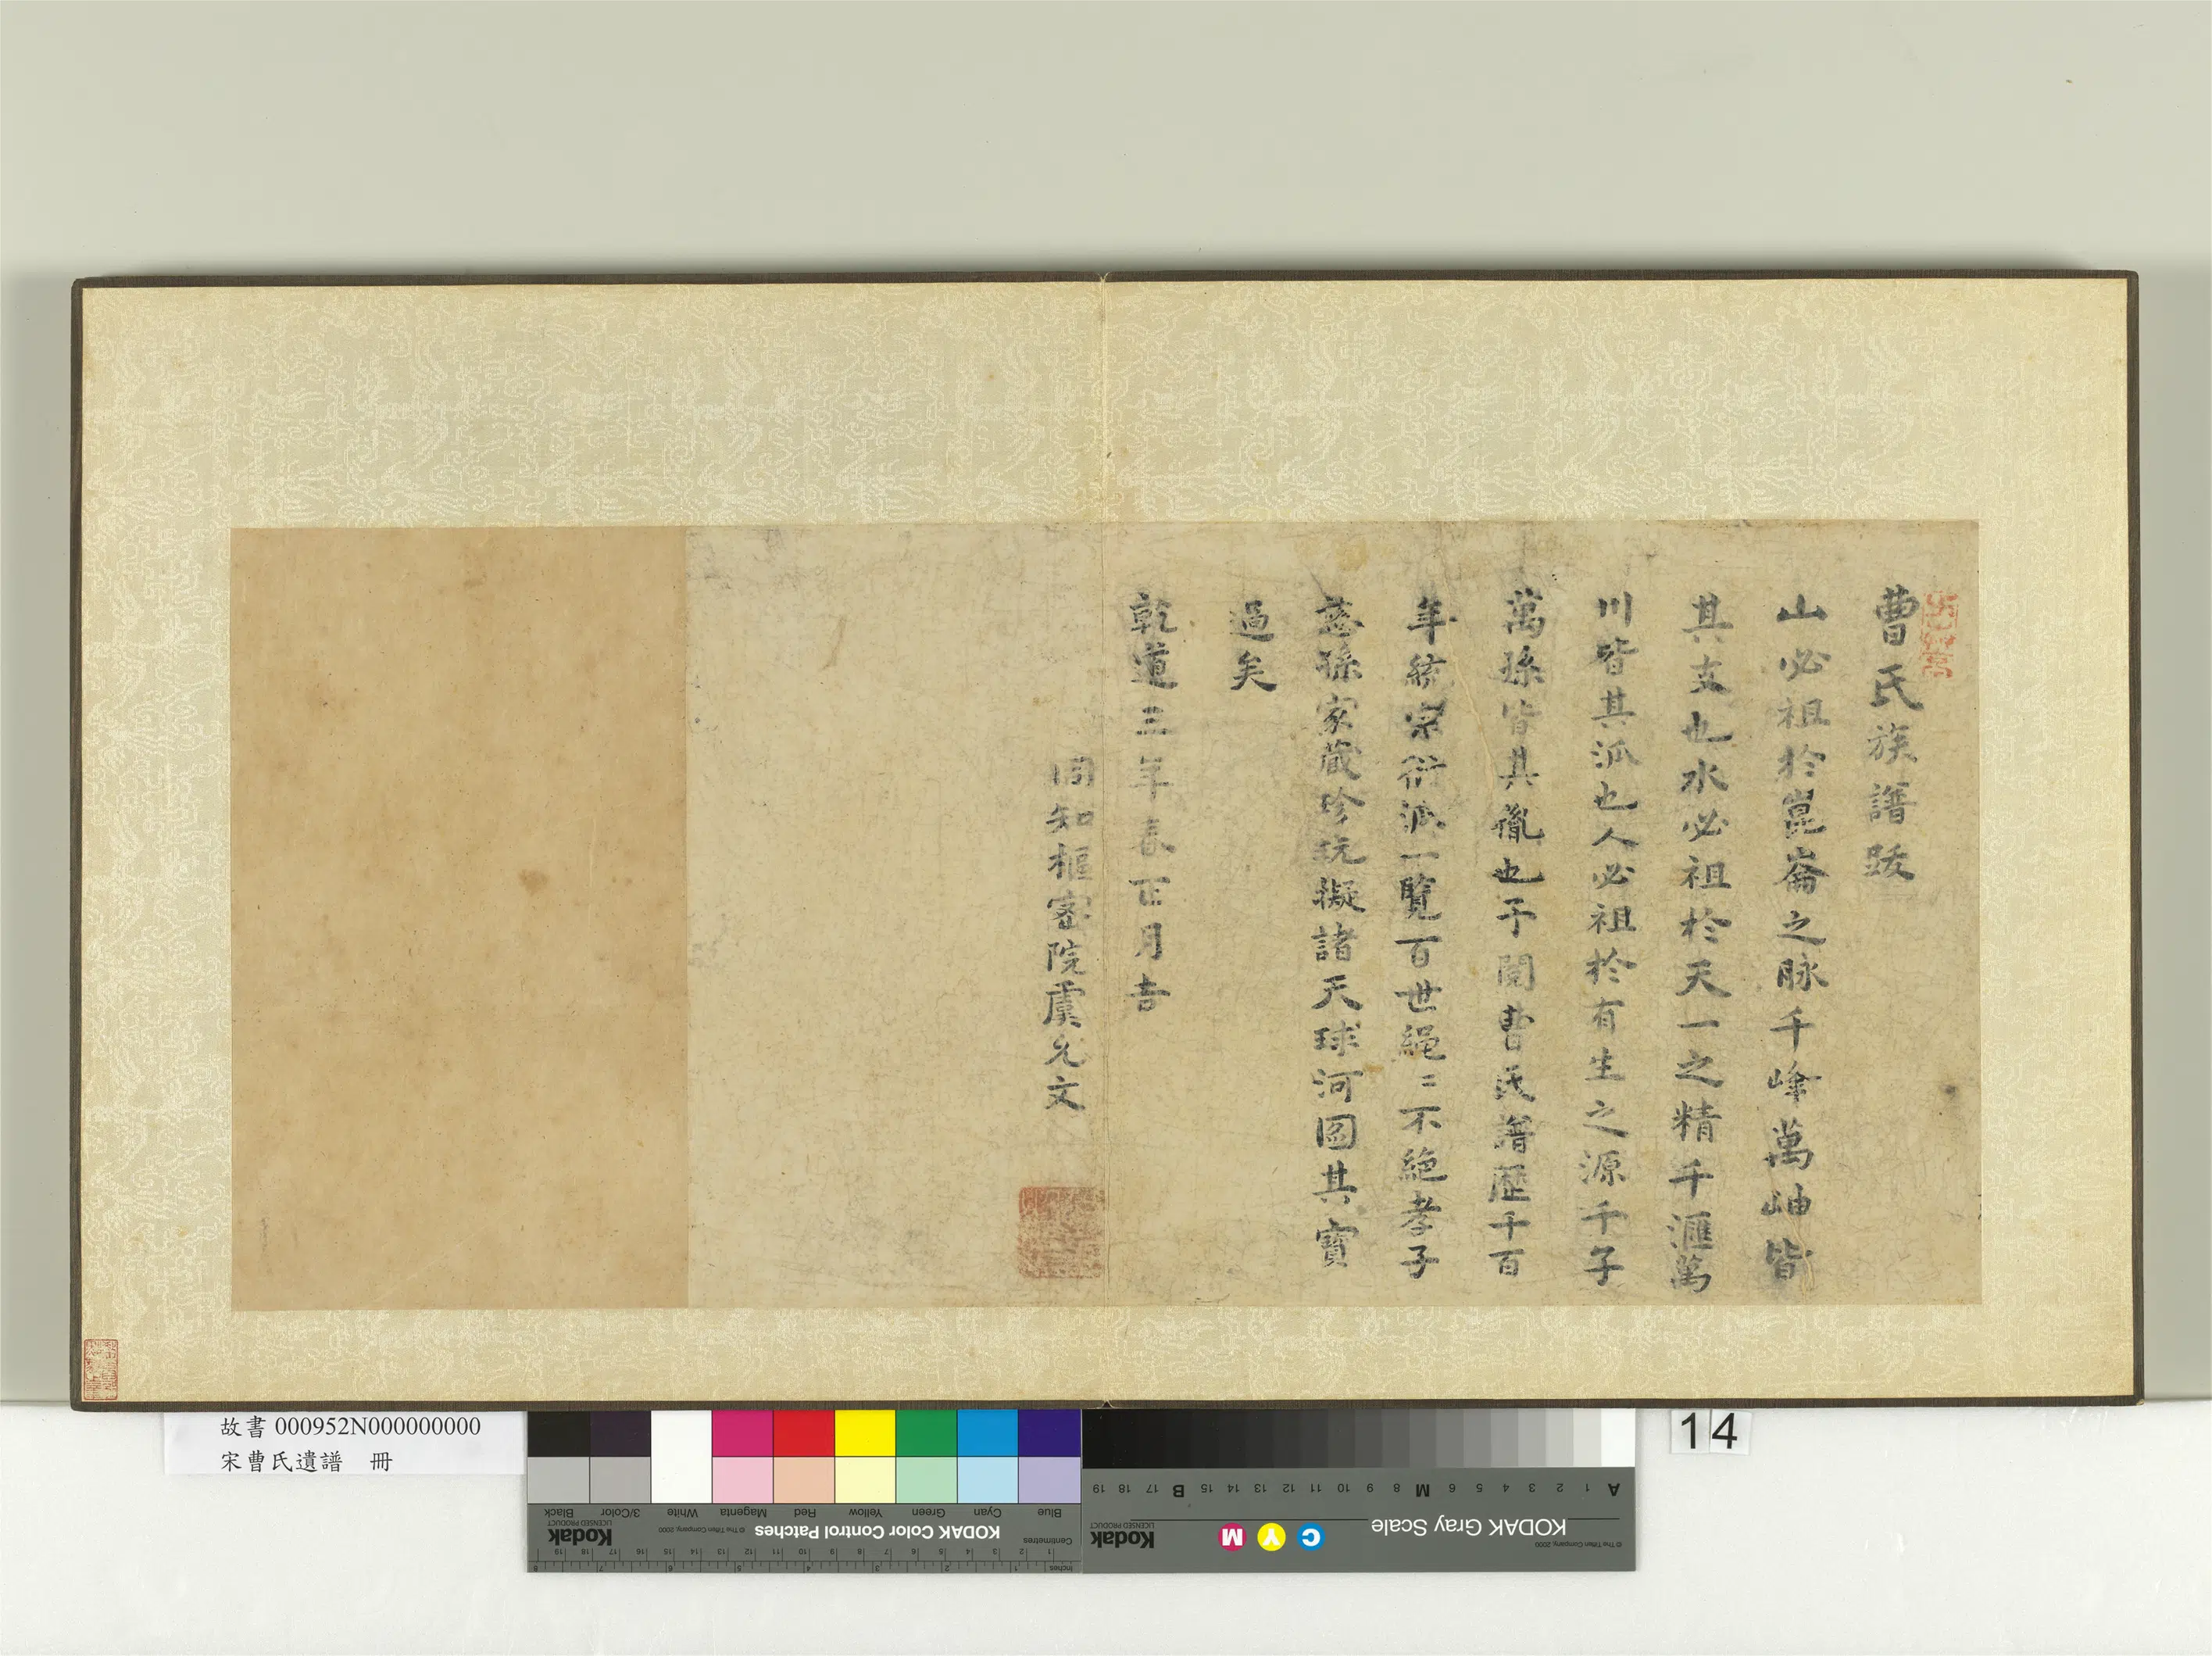 曹氏族譜跋
山必祖於崑崙之脉千峰萬岫皆
其支也水必祖於天一之精千滙萬
川皆其派也人必祖於有生之源千子
萬孫皆其胤也予閱曹氏譜歷千百
年統宗衍派一覧百世繩〻不絶孝子
慈孫家藏珍玩擬諸天球河圖其寶
過矣
乾道三年春正月吉
同知樞密院虞允文
故書 000952N000000000
宋曹氏遺譜 冊
14
Blue
Cyan
Green
Yellow
Red
Magenta
White
3/Color
Black
KODAK Color Control Patches
© The Tiffen Company, 2000
Kodak
LICENSED PRODUCT
Centimetres
Inches
KODAK Gray Scale
C Y M
Kodak
LICENSED PRODUCT
© The Tiffen Company, 2000
A 1 2 3 4 5 6 M 8 9 10 11 12 13 14 15 B 17 18 19